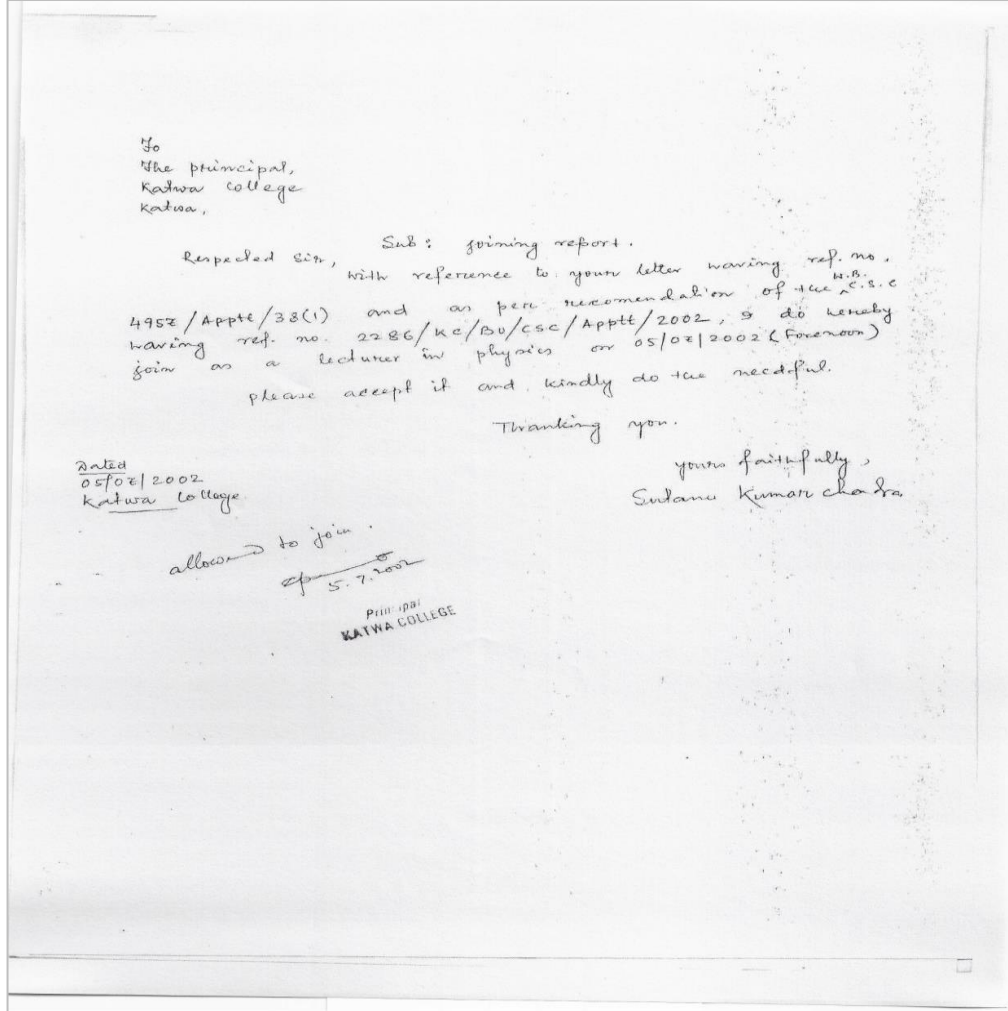 To
The principal,
Katwa College
Katwa,
Sub: joining report.
Respected Sir,
with reference to your letter having ref. no.
4957/Apptt/33(1) and as per recomendation of the W.B. C.S.C
having ref. no. 2286/KC/BU/CSC/Apptt/2002, I do hereby
join as a lecturer in physics on 05/07/2002 (Forenoon)
please accept it and kindly do the needful.
Thanking you.
yours faithfully,
Kumar Chandra
Dated
05/07/2002
Katwa College
allowed to join.
5.7.2002
Principal
KATWA COLLEGE